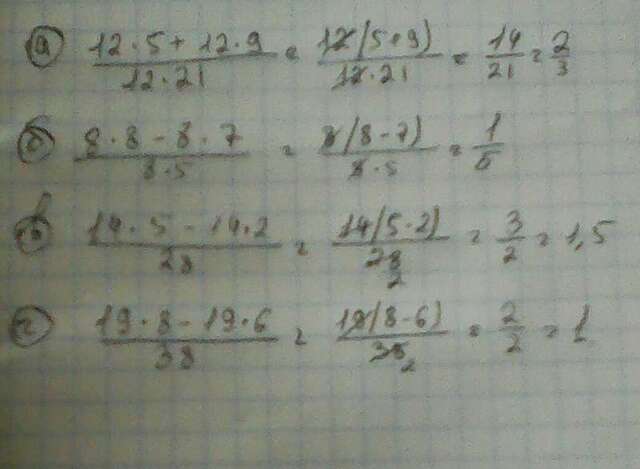 а) (12·5 + 12·9)/(12·21) = 12(5+9)/(12·21) = 14/21 = 2/3
б) (8·8 - 8·7)/(8·5) = 8(8-7)/(8·5) = 1/5
в) (14·5 - 14·2)/28 = 14(5-2)/28 2 = 3/2 = 1,5
г) (19·8 - 19·6)/38 = 19(8-6)/38 2 = 2/2 = 1